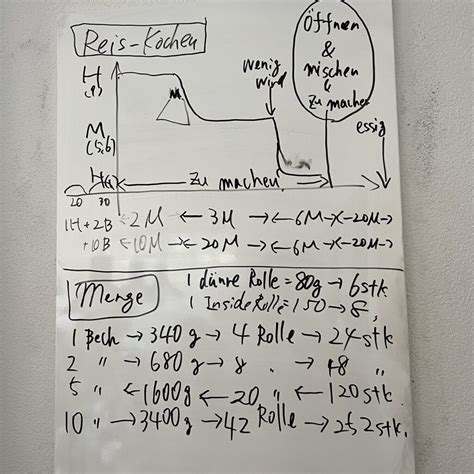 Reis-Kochen
Öffnen
&
mischen
&
zu machen
wenig
wird
essig
H
(9)
M
(5,6)
zu machen
20 30
1H+2B ← 2M ← 3M → ← 6M → ← 20M →
+10B ← 10M → ← 20M → ← 6M → ← 20M →
Menge
1 dünne Rolle = 80g → 6stk.
1 Inside Rolle = 150 → 8 "
1 Bech → 340g → 4 Rolle → 24stk
2 " → 680g → 8 " → 48 "
5 " ← 1600g ← 20 " ← 120stk.
10 " → 3400g → 42 Rolle → 252stk.